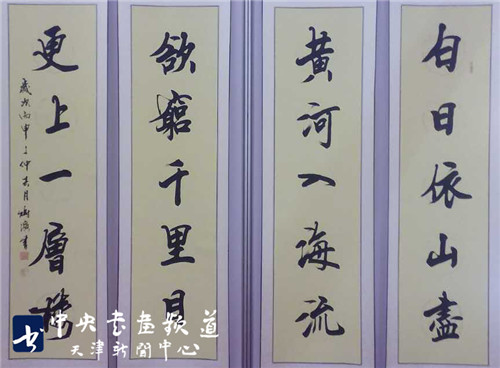 白日依山盡
黃河入海流
欲窮千里目
更上一層樓
歲次丙申之仲春月
书
中央书画频道
天津新聞中心